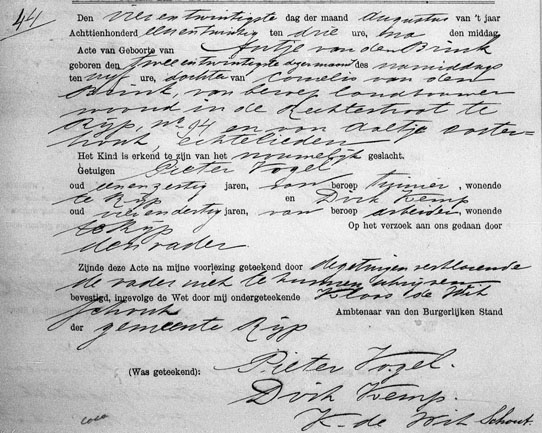 44
Den vierentwintigste dag der maand Augustus van 't jaar
Achttienhonderd eenentwintig ten drie ure, na den middag.
Acte van Geboorte van Antje van den Brink
geboren den tweeentwintigste dezer maand des namiddags
ten vijf ure, dochter van Cornelis van den
Brink, van beroep landbouwer
woond in de Rechtestraat te
Ryp, no 94 en van Aaltje Ooster-
hout, echtelieden
Het Kind is erkend te zijn van het vrouwelijk geslacht.
Getuigen Pieter Vogel
oud eenenzestig jaren, van beroep , wonende
te Ryp en Dirk Kemp
oud vierendertig jaren, van beroep arbeider, wonende
te Ryp Op het verzoek aan ons gedaan door
den vader.
Zijnde deze Acte na mijne voorlezing geteekend door de getuigen verklarende
de vader niet te kunnen schrijven
bevestigd, ingevolge de Wet door mij ondergeteekende Klaas de Wit
Schout Ambtenaar van den Burgerlijken Stand
der gemeente Ryp
(Was geteekend): Pieter Vogel.
Dirk Kemp.
K. de Wit Schout.